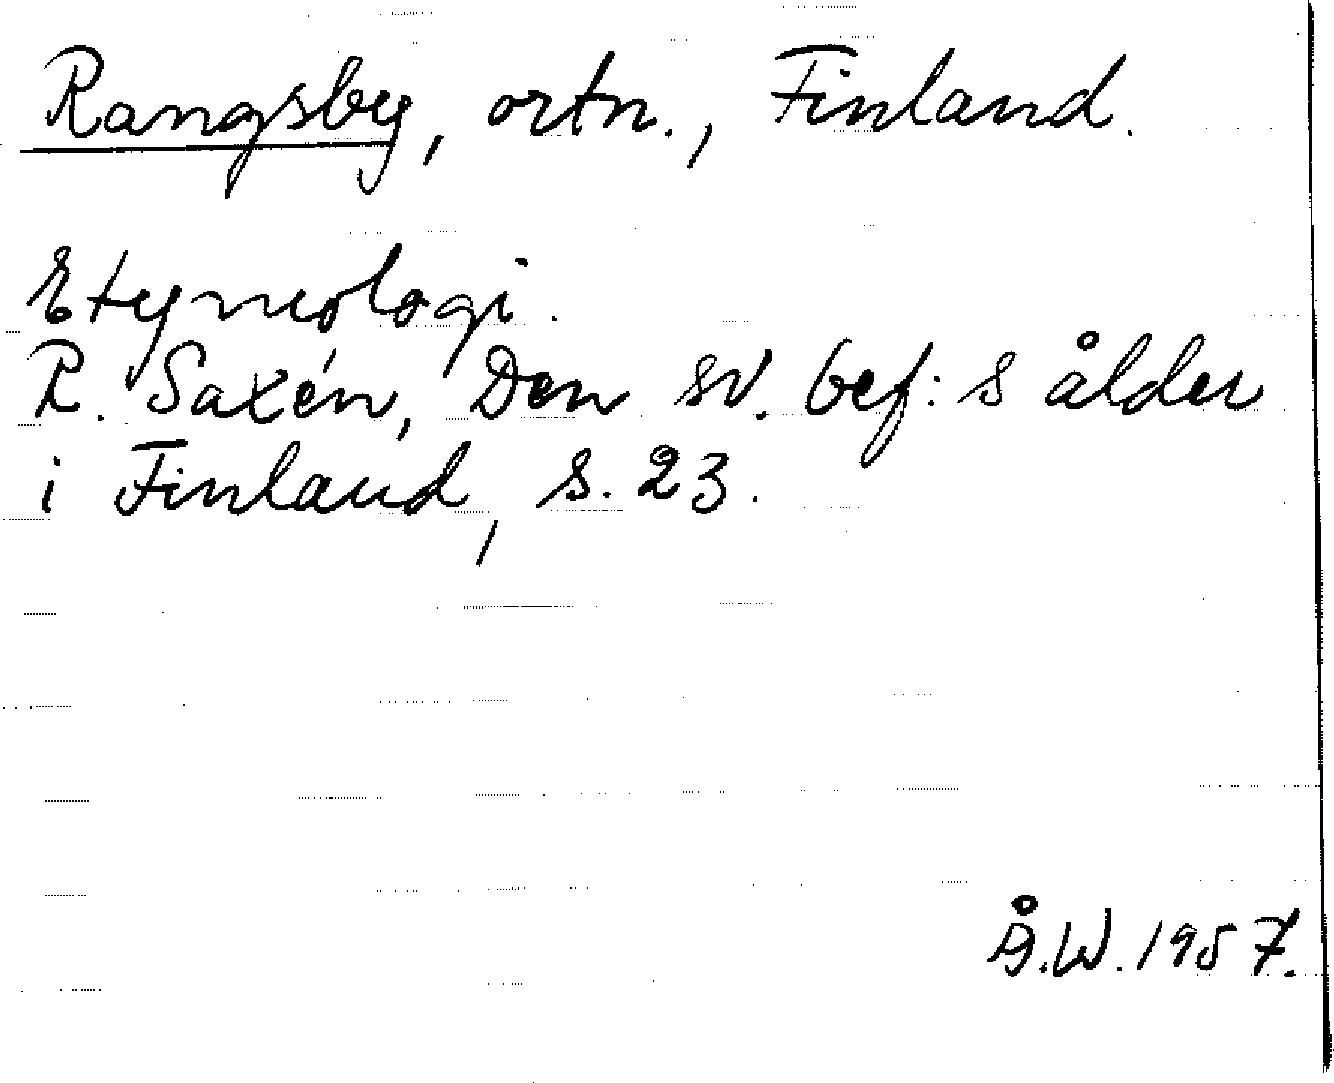 Rangsby, ortn., Finland.
Etymologi.
R. Saxén, Den sv. bef:s ålder
i Finland, s. 23.
Å.W. 1957.